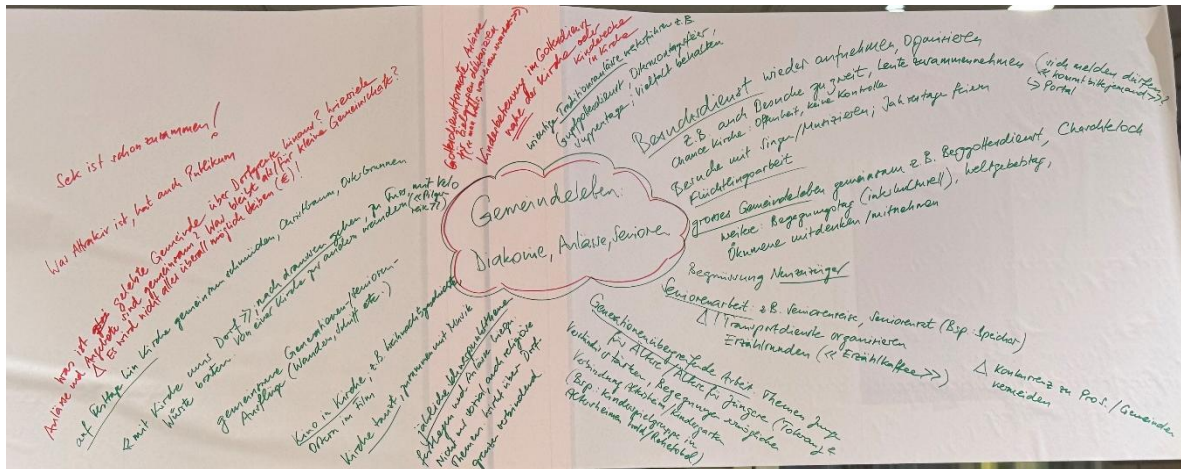 Gemeindeleben:
Diakonie, Anlässe, Senioren
Sek ist schon zusammen!
Was attraktiv ist, hat auch Publikum
Was ist gelebte Gemeinde über Dorfgrenze hinaus? Wieviele
Anlässe und Angebote sind gemeinsam? Was bleibt als/für kleine Gemeinschaft?
Es wird nicht alles überall möglich bleiben (€)!
auf Festtage hin Kirche gemeinsam schmücken, Christbaum, Osterbrunnen
« mit Kirche ums Dorf »; nach draussen gehen, zu Fuss, mit Velo
Würste braten. Von einer Kirche zur andern wandern
gemeinsame Generationen-/Senioren-
Ausflüge (Wandern, Schiff etc.)
Kino in Kirche, z.B. Weihnachtsgeschichte,
Ostern im Film
Kirche tanzt, zusammen mit Musik
jährliche Schwerpunktthemen
festlegen und Anlässe
Nicht nur sonst, auch religiöse
Themen. Wirkt über Dorf-
grenze verbindend
Gottesdienstformate, Anlässe
Kinderbetreuung im Gottesdienst
nahe der Kirche oder
Kinderecke
in Kirche
wenige Traditionsanlässe weiterführen z.B.
Gottesdienst, Ostermontagsfeier,
Suppentage; Vielfalt behalten
Besuchsdienst wieder aufnehmen, Organisieren
z.B. auch Besuche zu zweit, Leute zusammennehmen (sich melden dürfen:
« kommt bitte jemand »?
↳ Portal
Chance Kirche: Offenheit, keine Kontrolle
Besuche mit Singen/Musizieren; Jahrestage feiern
Flüchtlingsarbeit
grosses Gemeindeleben gemeinsam z.B. Berggottesdienst, Chäschteloch
weitere: Begegnungstag (interkulturell), Weltgebetstag,
Ökumene mitdenken/mitnehmen
Begrüssung Neuzuzüger
Seniorenarbeit: z.B. Seniorenreise, Seniorenrat (Bsp. Speicher)
! Transportdienste organisieren
Erzählrunden (« Erzählkaffee »)
Konkurrenz zu Pros./Gemeinden
vermeiden
Generationenübergreifende Arbeit: Themen Junge
für Ältere/Ältere für Jüngere (Toleranz &
Verständnis stärken, Begegnungen ermöglichen
Verbindung Altersheim/Kindergarten
(Bsp: Kinderspielgruppe in
Altersheimen Wald/Rehetobel)